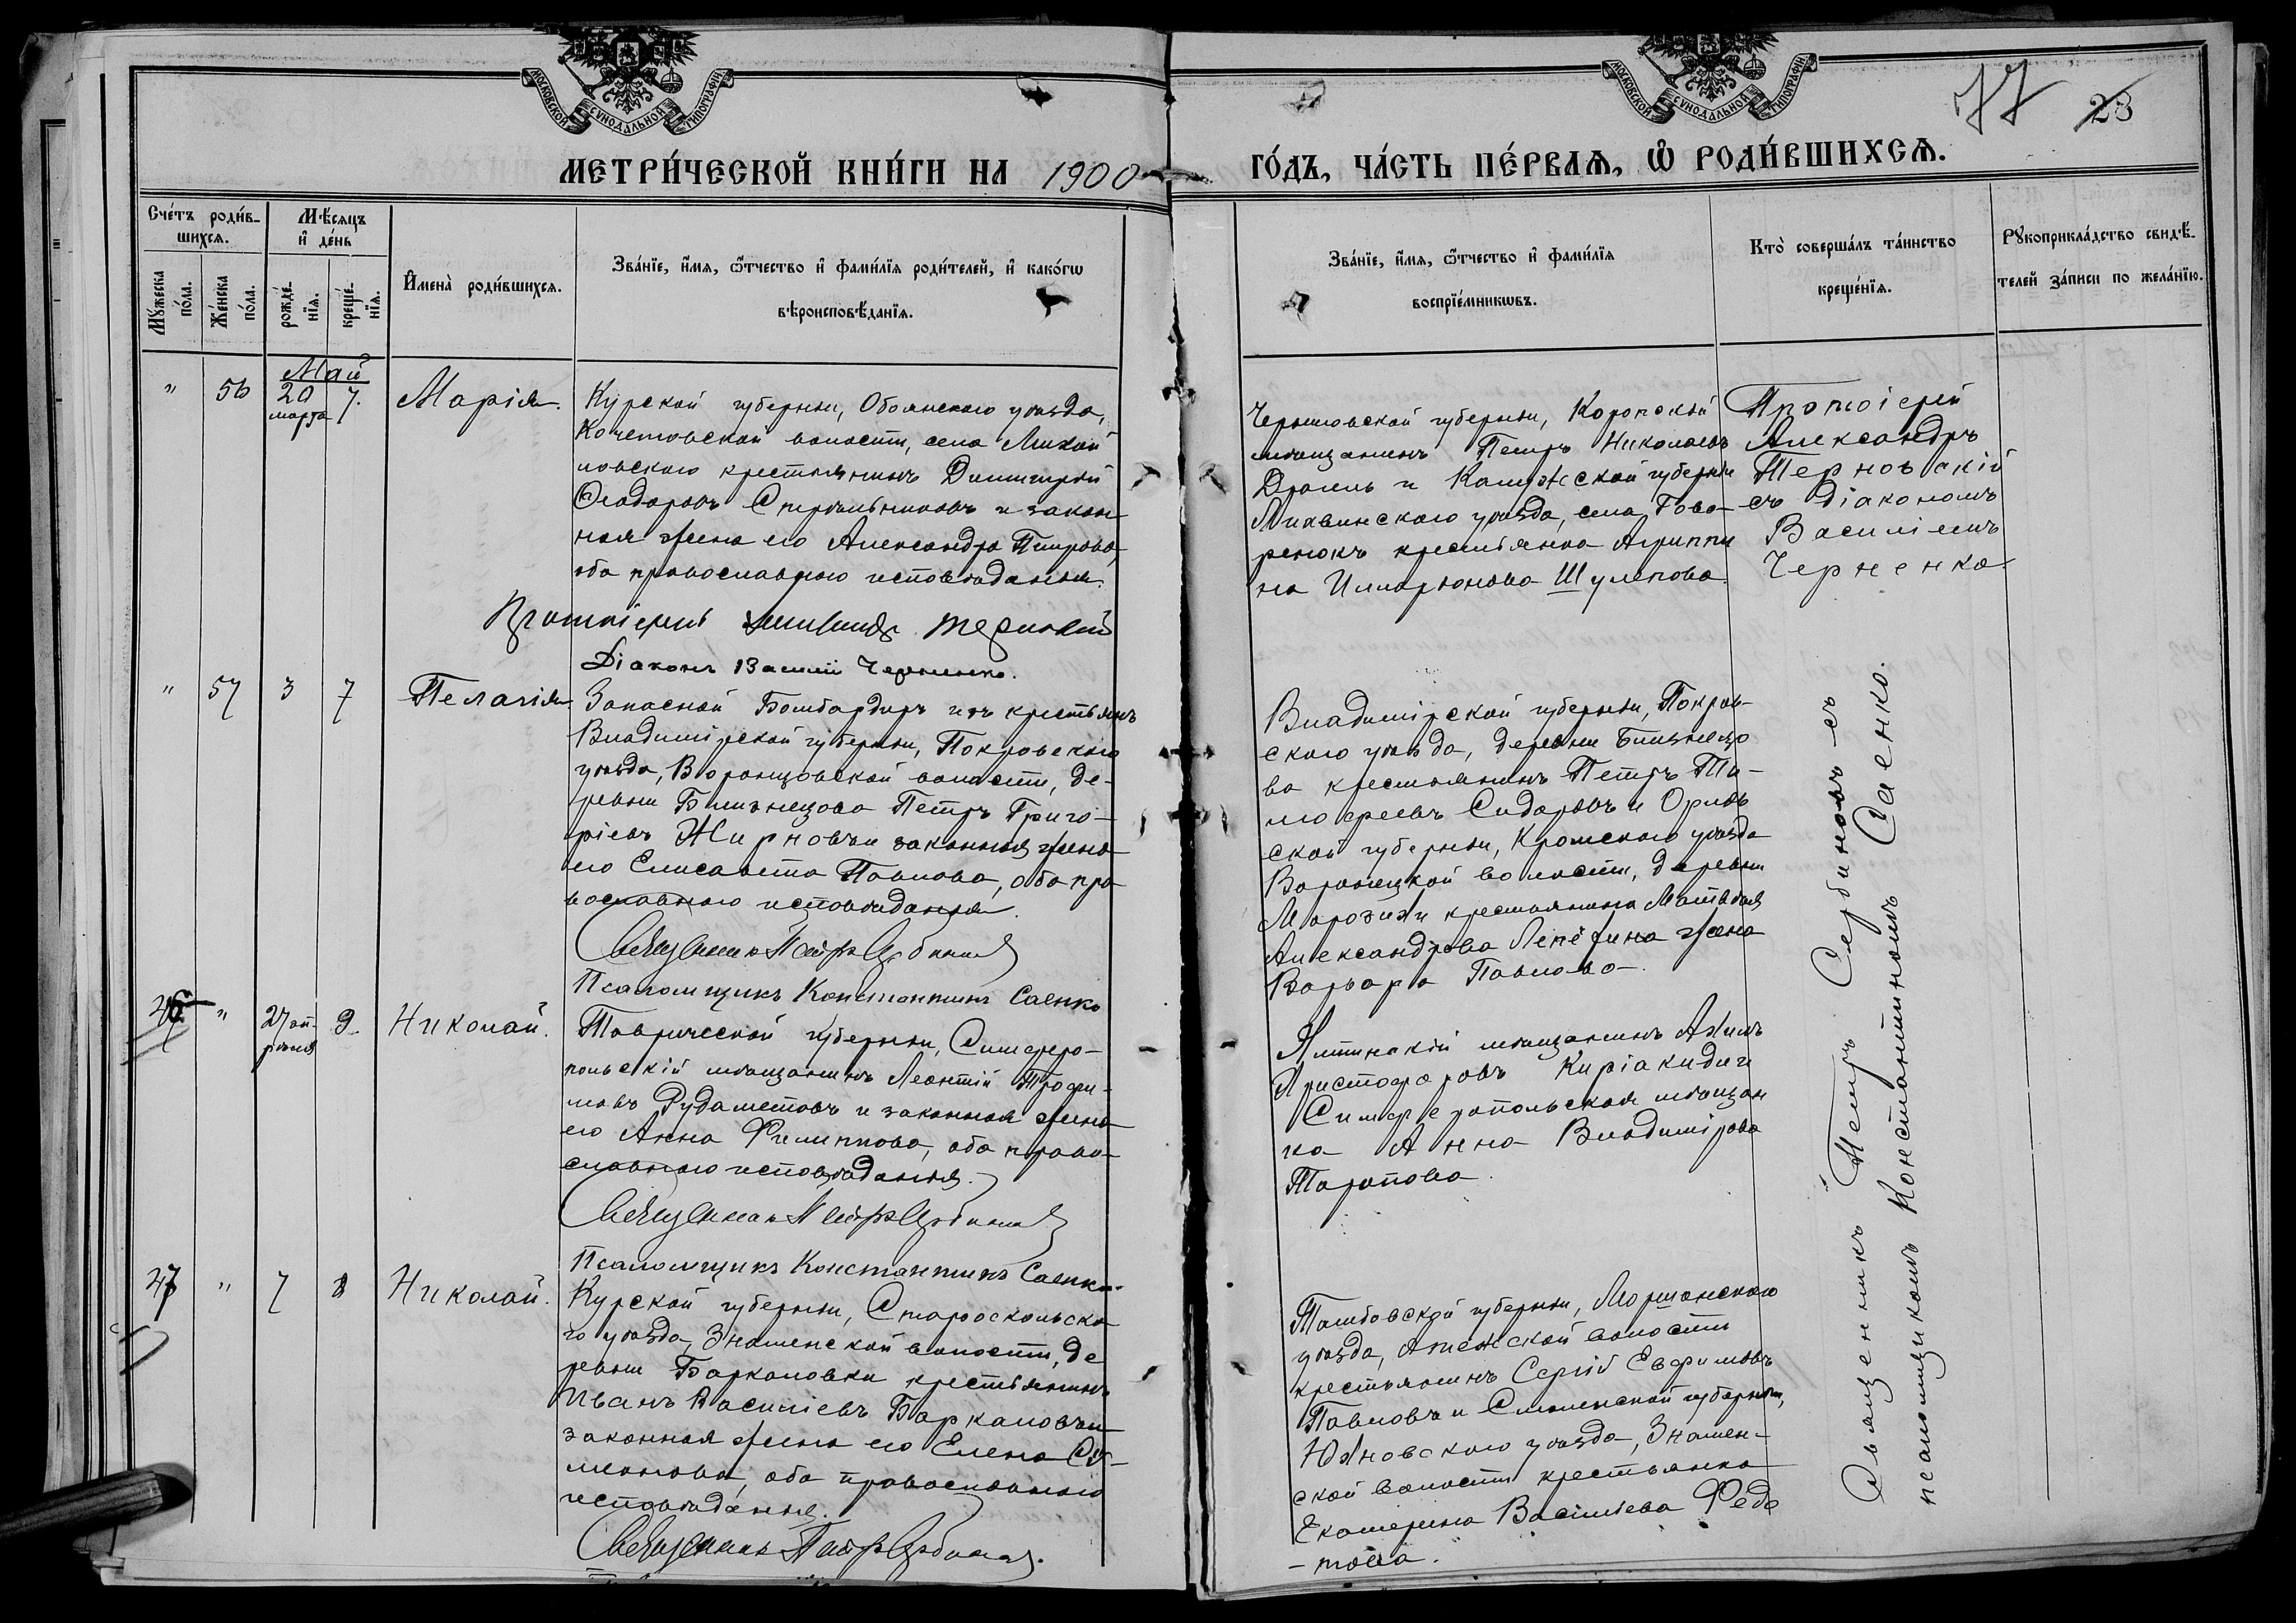 МОСКОВСКОЙ СѴНОДАЛЬНОЙ ТИПОГРАФІИ
МОСКОВСКОЙ СѴНОДАЛЬНОЙ ТИПОГРАФІИ
77 23
МЕТРИ́ЧЕСКОЙ КНИ́ГИ НА 1900 ГО́ДЪ, ЧА́СТЬ ПЕ́РВАѦ, Ѡ҆ РОДИ́ВШИХСѦ.
Сче́тъ роди́в-
шихсѧ.
Мꙋжеска по́ла.
Же́нска по́ла.
Мѣ́сѧцъ
и҆ де́нь
рожде́-
нїѧ.
креще́-
нїѧ.
И҆мена̀ роди́вшихсѧ.
Зва́нїе, и҆́мѧ, ѻ҆́тчество и҆ фами́лїѧ роди́телей, и҆ како́гѡ
вѣроисповѣ́данїѧ.
Зва́нїе, и҆́мѧ, ѻ҆́тчество и҆ фами́лїѧ
воспрїе́мникѡвъ.
Кто̀ соверша́лъ та́инство
креще́нїѧ.
Рꙋкоприкла́дство свидѣ́-
телей за́писи по жела́нїю.
Май
" 56 20 марта 7. Марія.
Курской губерніи, Обоянскаго уѣзда,
Кочетовской волости, села Михай
ловскаго крестьянинъ Димитрій
Ѳеодоровъ Стрѣльниковъ и закон
ная жена его Александра Петрова,
оба православнаго исповѣданія.
Протоіерей Александръ Терновскій
Діаконъ Василій Черненко.
Черниговской губерніи, Коропскій
мѣщанинъ Петръ Николаевъ
Дроль и Калужской губерніи
Лихвинскаго уѣзда, села Гово-
ренокъ крестьянка Агриппи
на Илларіонова Шулепова.
Протоіерей
Александръ
Терновскій
съ діакономъ
Василіемъ
Черненко
" 57 3 7 Пелагія
Запасной Бомбардиръ изъ крестьянъ
Владимірской губерніи, Покровскаго
уѣзда, Воронцовской волости, де-
ревни Близнецова Петръ Григо-
рьевъ Жирновъ и законная жена
его Елисавета Павлова, оба пра
вославнаго исповѣданія.
Священникъ Петръ Сербиновъ
Псаломщикъ Константинъ Саенко
Владимірской губерніи, Покров-
скаго уѣзда, деревни Близнецо
ва крестьянинъ Петръ Ти-
моѳеевъ Сидоровъ и Орлов
ской губерніи, Кромскаго уѣзда
волости, деревни
крестьянина Матвѣя
Александрова жена
Варвара Павлова.
46 " 27 ап-
рѣля 9. Николай.
Таврической губерніи, Симферо-
польскій мѣщанинъ Леонтій Трофи-
мовъ Рудаметовъ и законная жена
его Анна Филиппова, оба право-
славнаго исповѣданія.
Священникъ Петръ Сербиновъ
Псаломщикъ Константинъ Саенко
Ялтинскій мѣщанинъ
Христофоровъ Киріакиди и
Симферопольская мѣщан
ка Анна Владимірова
Тарапова.
47 " 7 Николай.
Курской губерніи, Старооскольска
го уѣзда, Знаменской волости, де
ревни Баркаловки крестьянинъ
Иванъ Василіевъ Баркаловъ и
законная жена его Елена Сѵ-
меонова, оба православнаго
исповѣданія.
Священникъ Петръ Сербиновъ.
Тамбовской губерніи, Моршанскаго
уѣзда, волости
крестьянинъ Сергій Евфимовъ
Павловъ и Смоленской губерніи,
Юхновскаго уѣзда, Знамен-
ской волости крестьянка
Екатерина Васильева Федо
-това.
Священникъ Петръ Сербиновъ съ
псаломщикомъ Константиномъ Саенко.